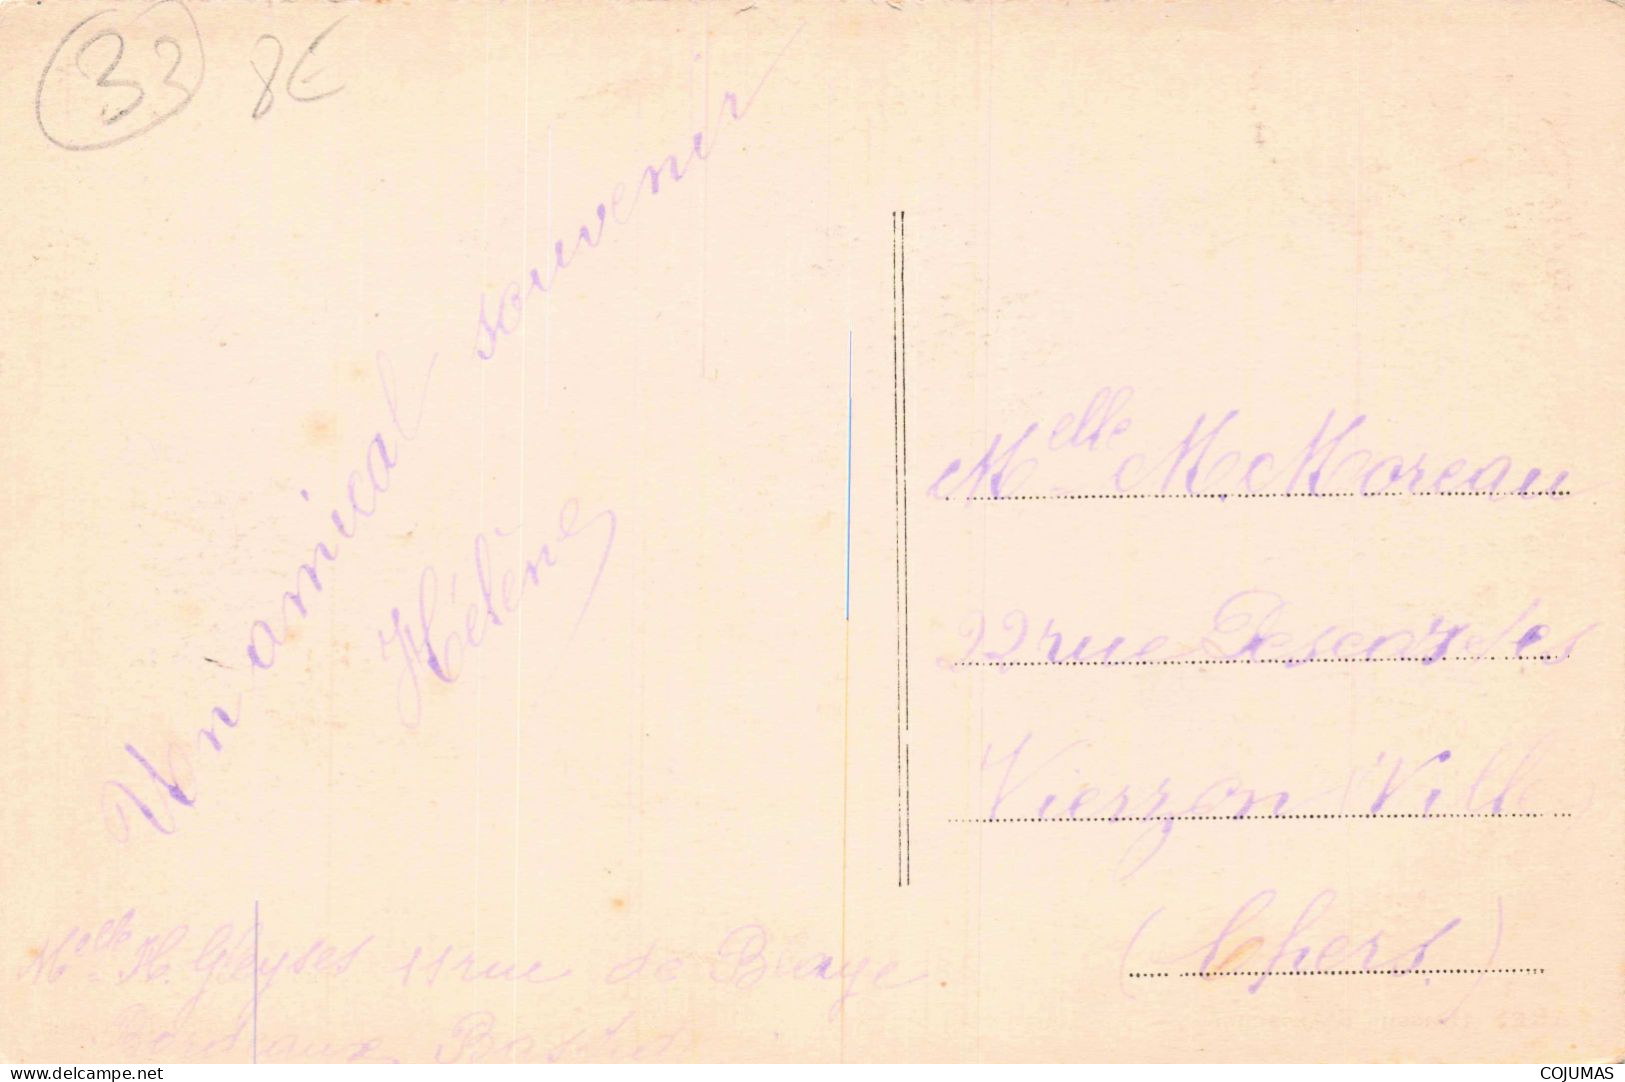 33 8€
Un amical souvenir
Hélène
Melle M. Moreau
22 rue Descartes
Vierzon Ville
(Chers.)
Melle H. Gleyses 11 rue de Blaye
Bordeaux Bastide
www.delcampe.net
COJUMAS